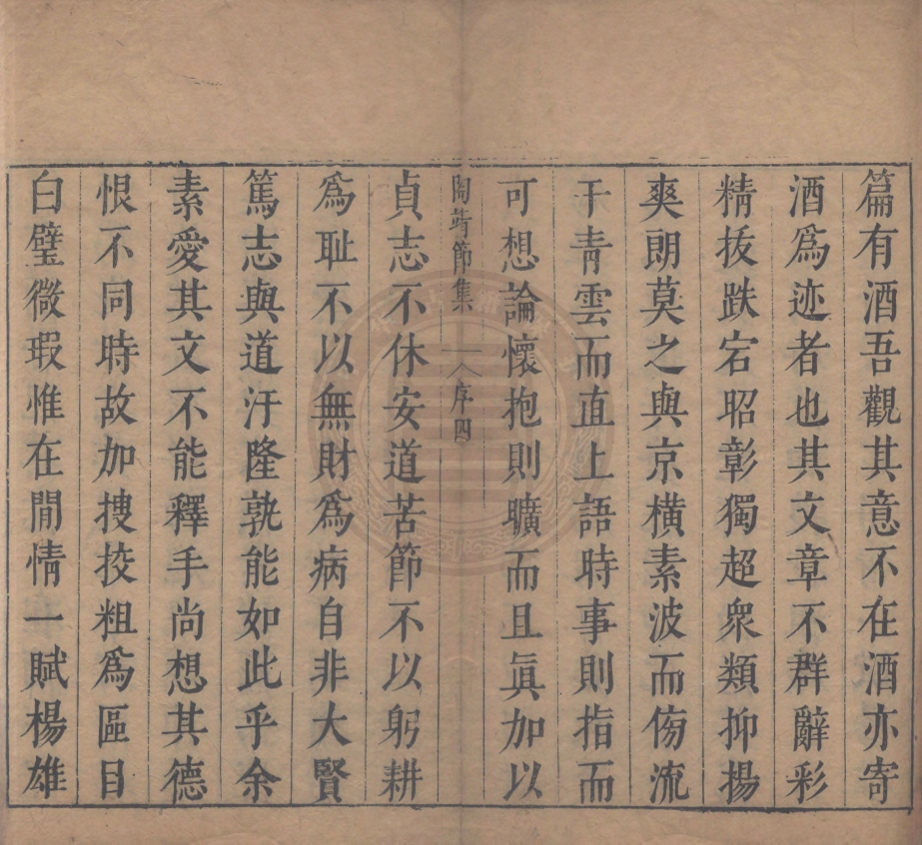 篇有酒吾觀其意不在酒亦寄
酒爲迹者也其文章不群辭彩
精拔跌宕昭彰獨超衆類抑揚
爽朗莫之與京橫素波而傍流
干青雲而直上語時事則指而
可想論懷抱則曠而且眞加以
陶靖節集 序 四
貞志不休安道苦節不以躬耕
爲耻不以無財爲病自非大賢
篤志與道汙隆孰能如此乎余
素愛其文不能釋手尚想其德
恨不同時故加搜挍粗爲區目
白璧微瑕惟在閒情一賦楊雄